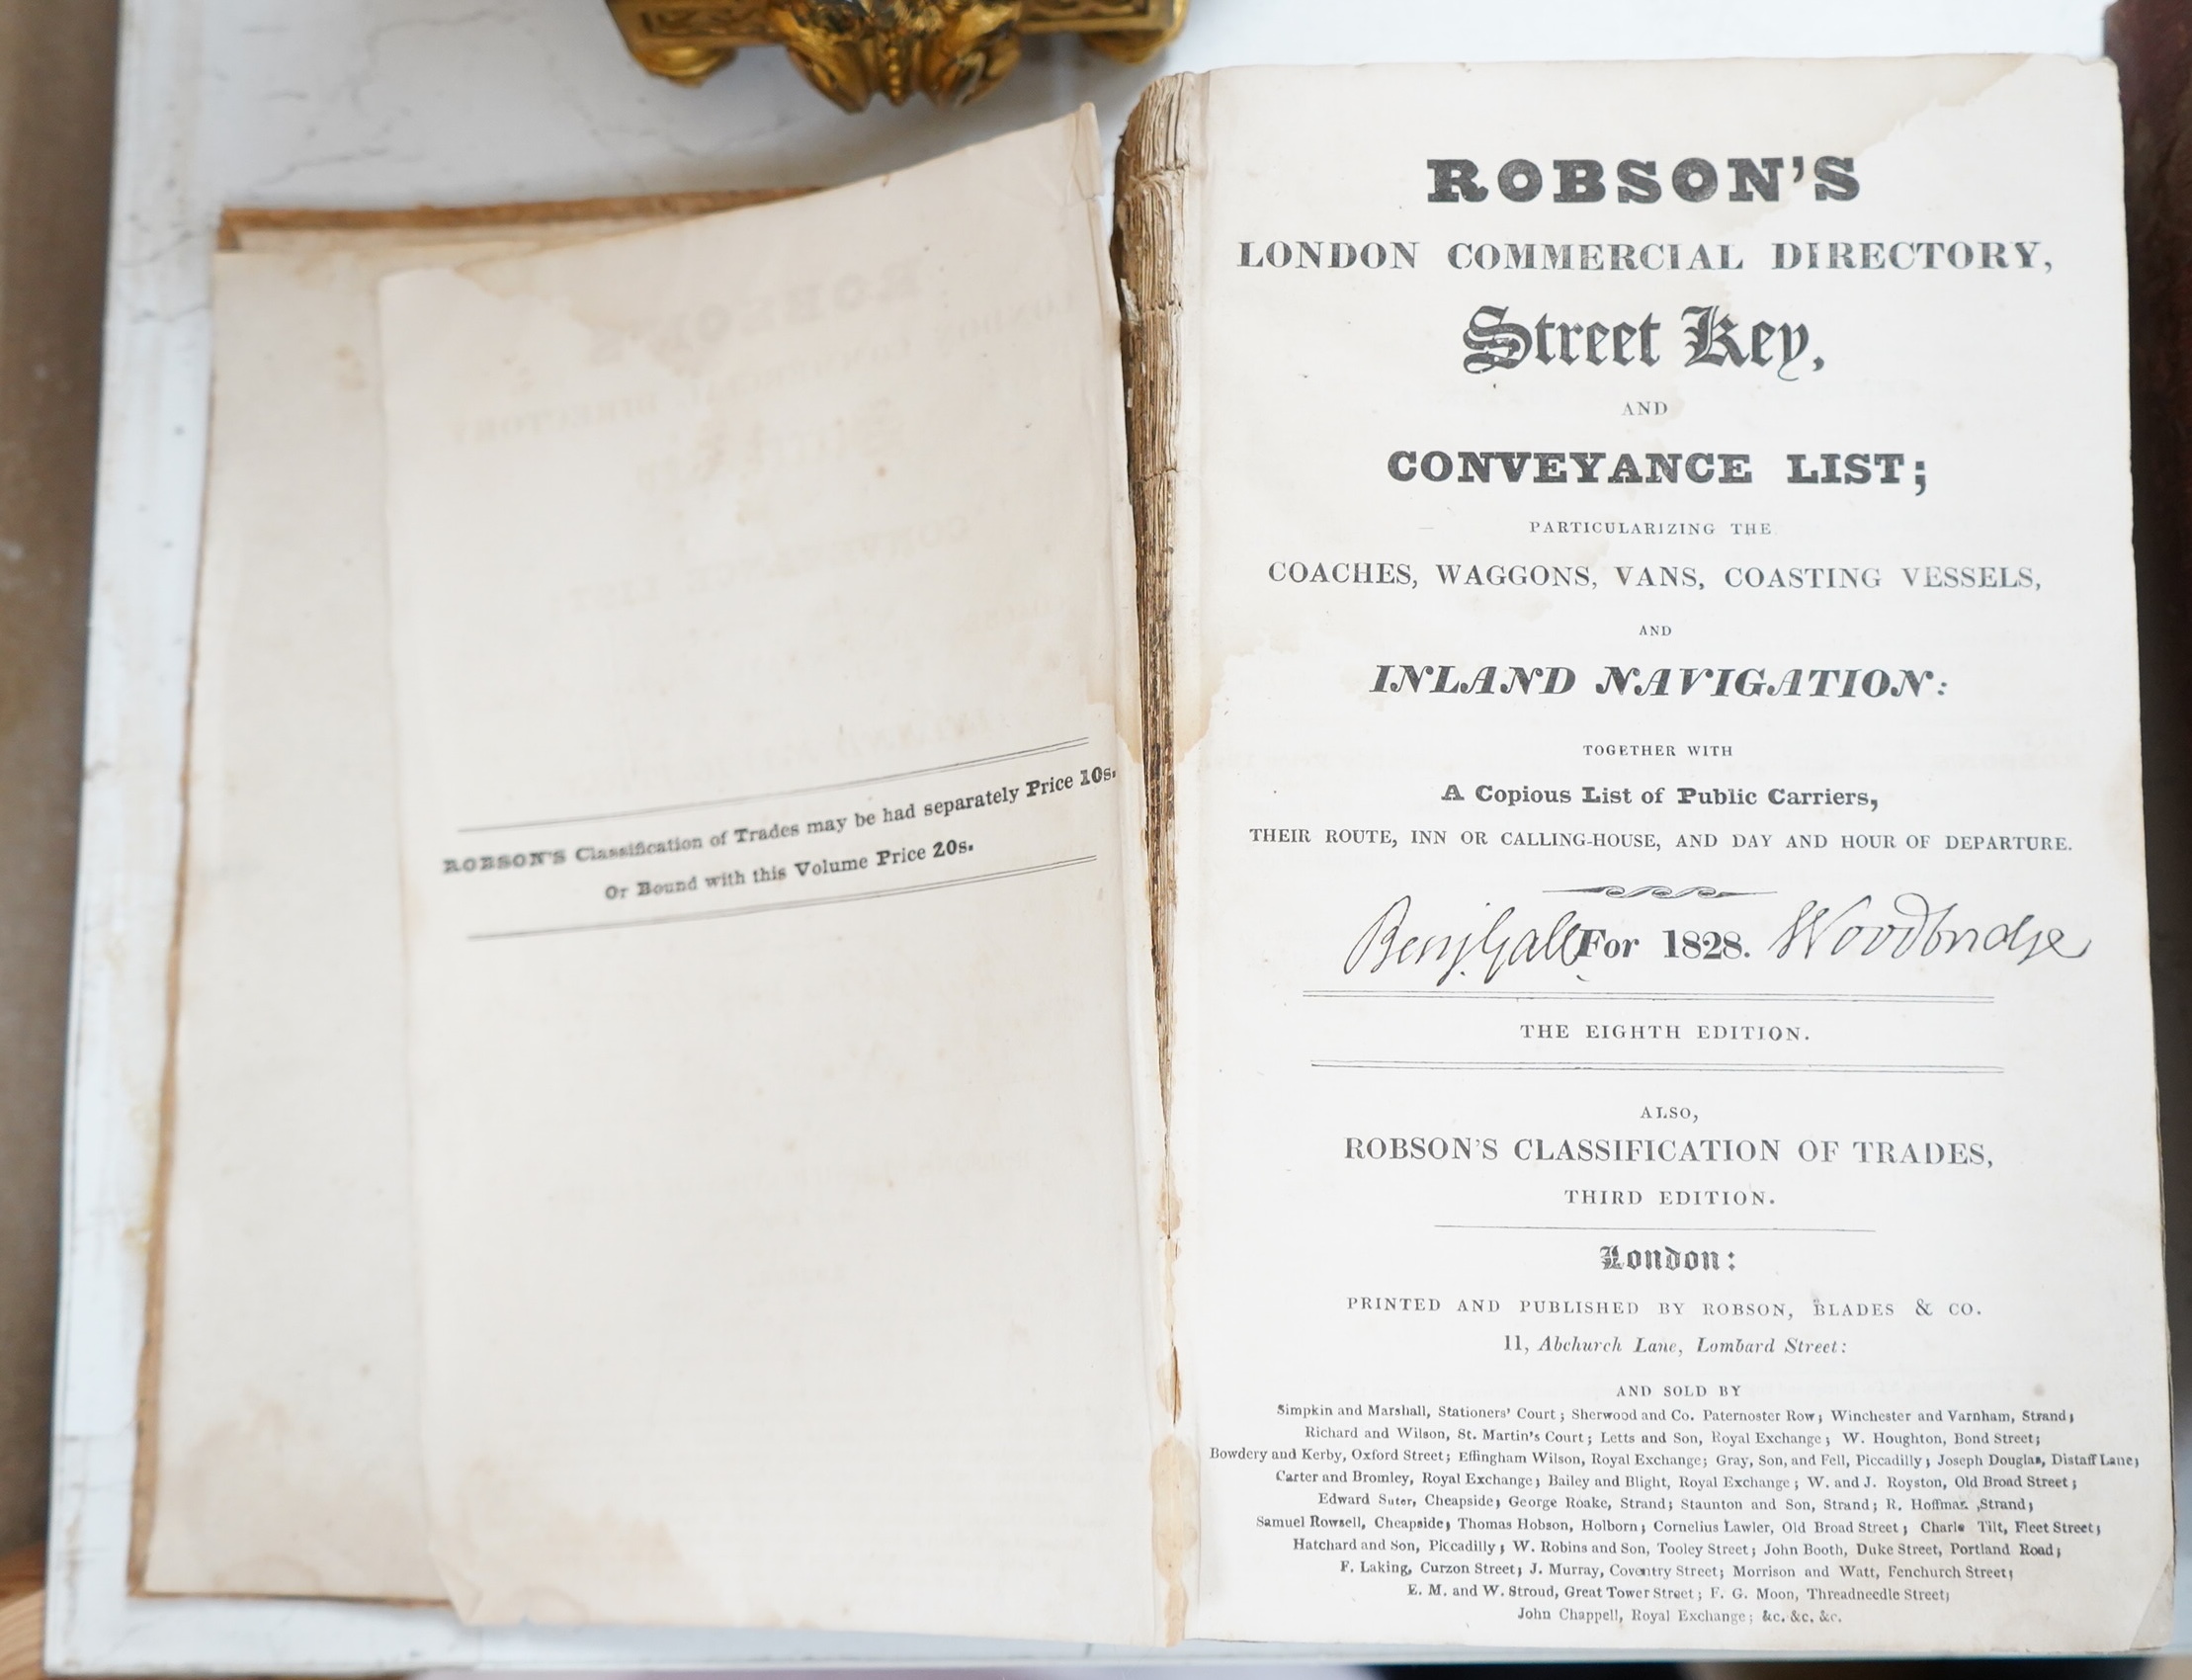 ROBSON'S Classification of Trades may be had separately Price 10s.
Or Bound with this Volume Price 20s.
ROBSON'S
LONDON COMMERCIAL DIRECTORY,
Street Key,
AND
CONVEYANCE LIST;
PARTICULARIZING THE
COACHES, WAGGONS, VANS, COASTING VESSELS,
AND
INLAND NAVIGATION:
TOGETHER WITH
A Copious List of Public Carriers,
THEIR ROUTE, INN OR CALLING-HOUSE, AND DAY AND HOUR OF DEPARTURE.
Benj. Gall For 1828. Woodbridge
THE EIGHTH EDITION.
ALSO,
ROBSON'S CLASSIFICATION OF TRADES,
THIRD EDITION.
London:
PRINTED AND PUBLISHED BY ROBSON, BLADES & CO.
11, Abchurch Lane, Lombard Street:
AND SOLD BY
Simpkin and Marshall, Stationers' Court; Sherwood and Co. Paternoster Row; Winchester and Varnham, Strand;
Richard and Wilson, St. Martin's Court; Letts and Son, Royal Exchange; W. Houghton, Bond Street;
Bowdery and Kerby, Oxford Street; Effingham Wilson, Royal Exchange; Gray, Son, and Fell, Piccadilly; Joseph Douglas, Distaff Lane;
Carter and Bromley, Royal Exchange; Bailey and Blight, Royal Exchange; W. and J. Royston, Old Broad Street;
Edward Suter, Cheapside; George Roake, Strand; Staunton and Son, Strand; R. Hoffman, Strand;
Samuel Rowsell, Cheapside; Thomas Hobson, Holborn; Cornelius Lawler, Old Broad Street; Charle Tilt, Fleet Street;
Hatchard and Son, Piccadilly; W. Robins and Son, Tooley Street; John Booth, Duke Street, Portland Road;
F. Laking, Curzon Street; J. Murray, Coventry Street; Morrison and Watt, Fenchurch Street;
E. M. and W. Stroud, Great Tower Street; F. G. Moon, Threadneedle Street;
John Chappell, Royal Exchange; &c. &c. &c.